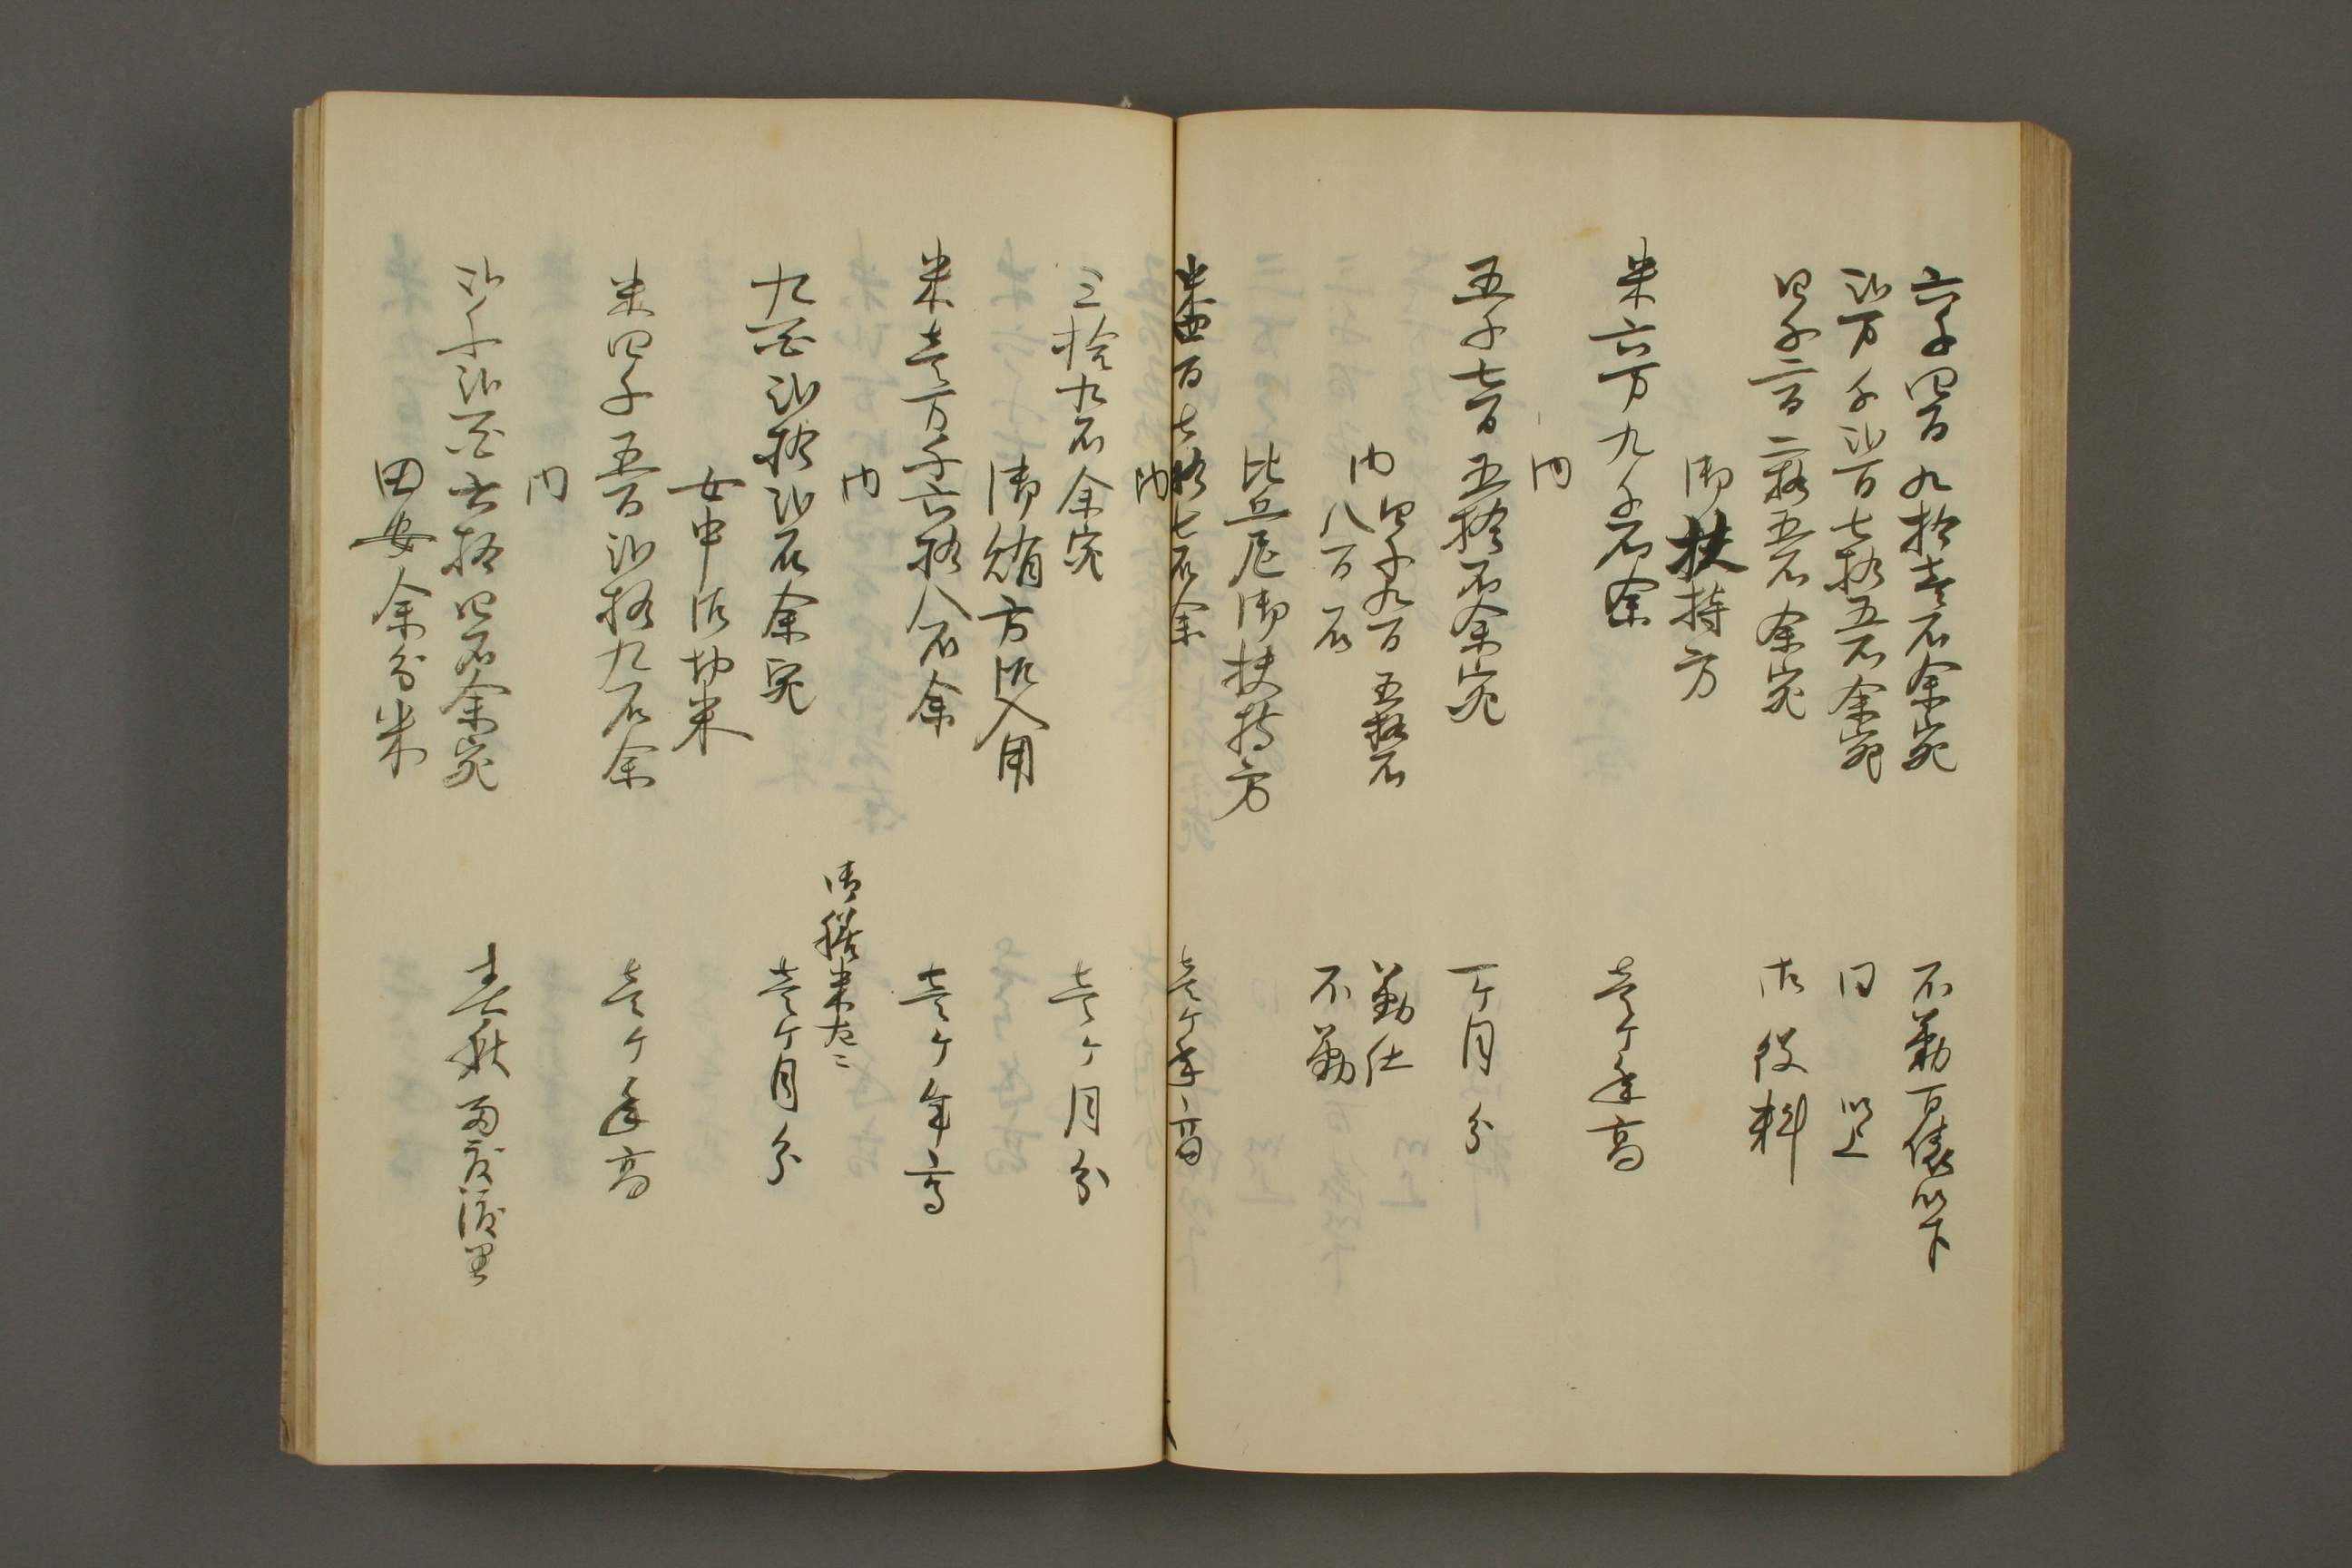 六千四百九拾壱石余宛 不勤百俵以下
弐万千弐百七拾五石余宛 同 以上
四千三百三拾五石余宛 御役料
御扶持方
米六万九千石余 壱ケ年高
内
五千七百五拾石余宛 一ケ月分
内 四千九百五拾石 勤仕
八百石 不勤
比丘尼御扶持方
米四百七拾七石余 壱ケ年高
内
三拾九石余宛 壱ケ月分
御賄方御入用
米壱万千六拾八石余 壱ケ年高
内 御膳米共ニ
九百弐拾弐石余宛 壱ケ月分
女中御切米
米四千五百弐拾九石余 壱ケ年高
内
弐千弐百六拾四石余宛 春秋両度渡里
田安余分米